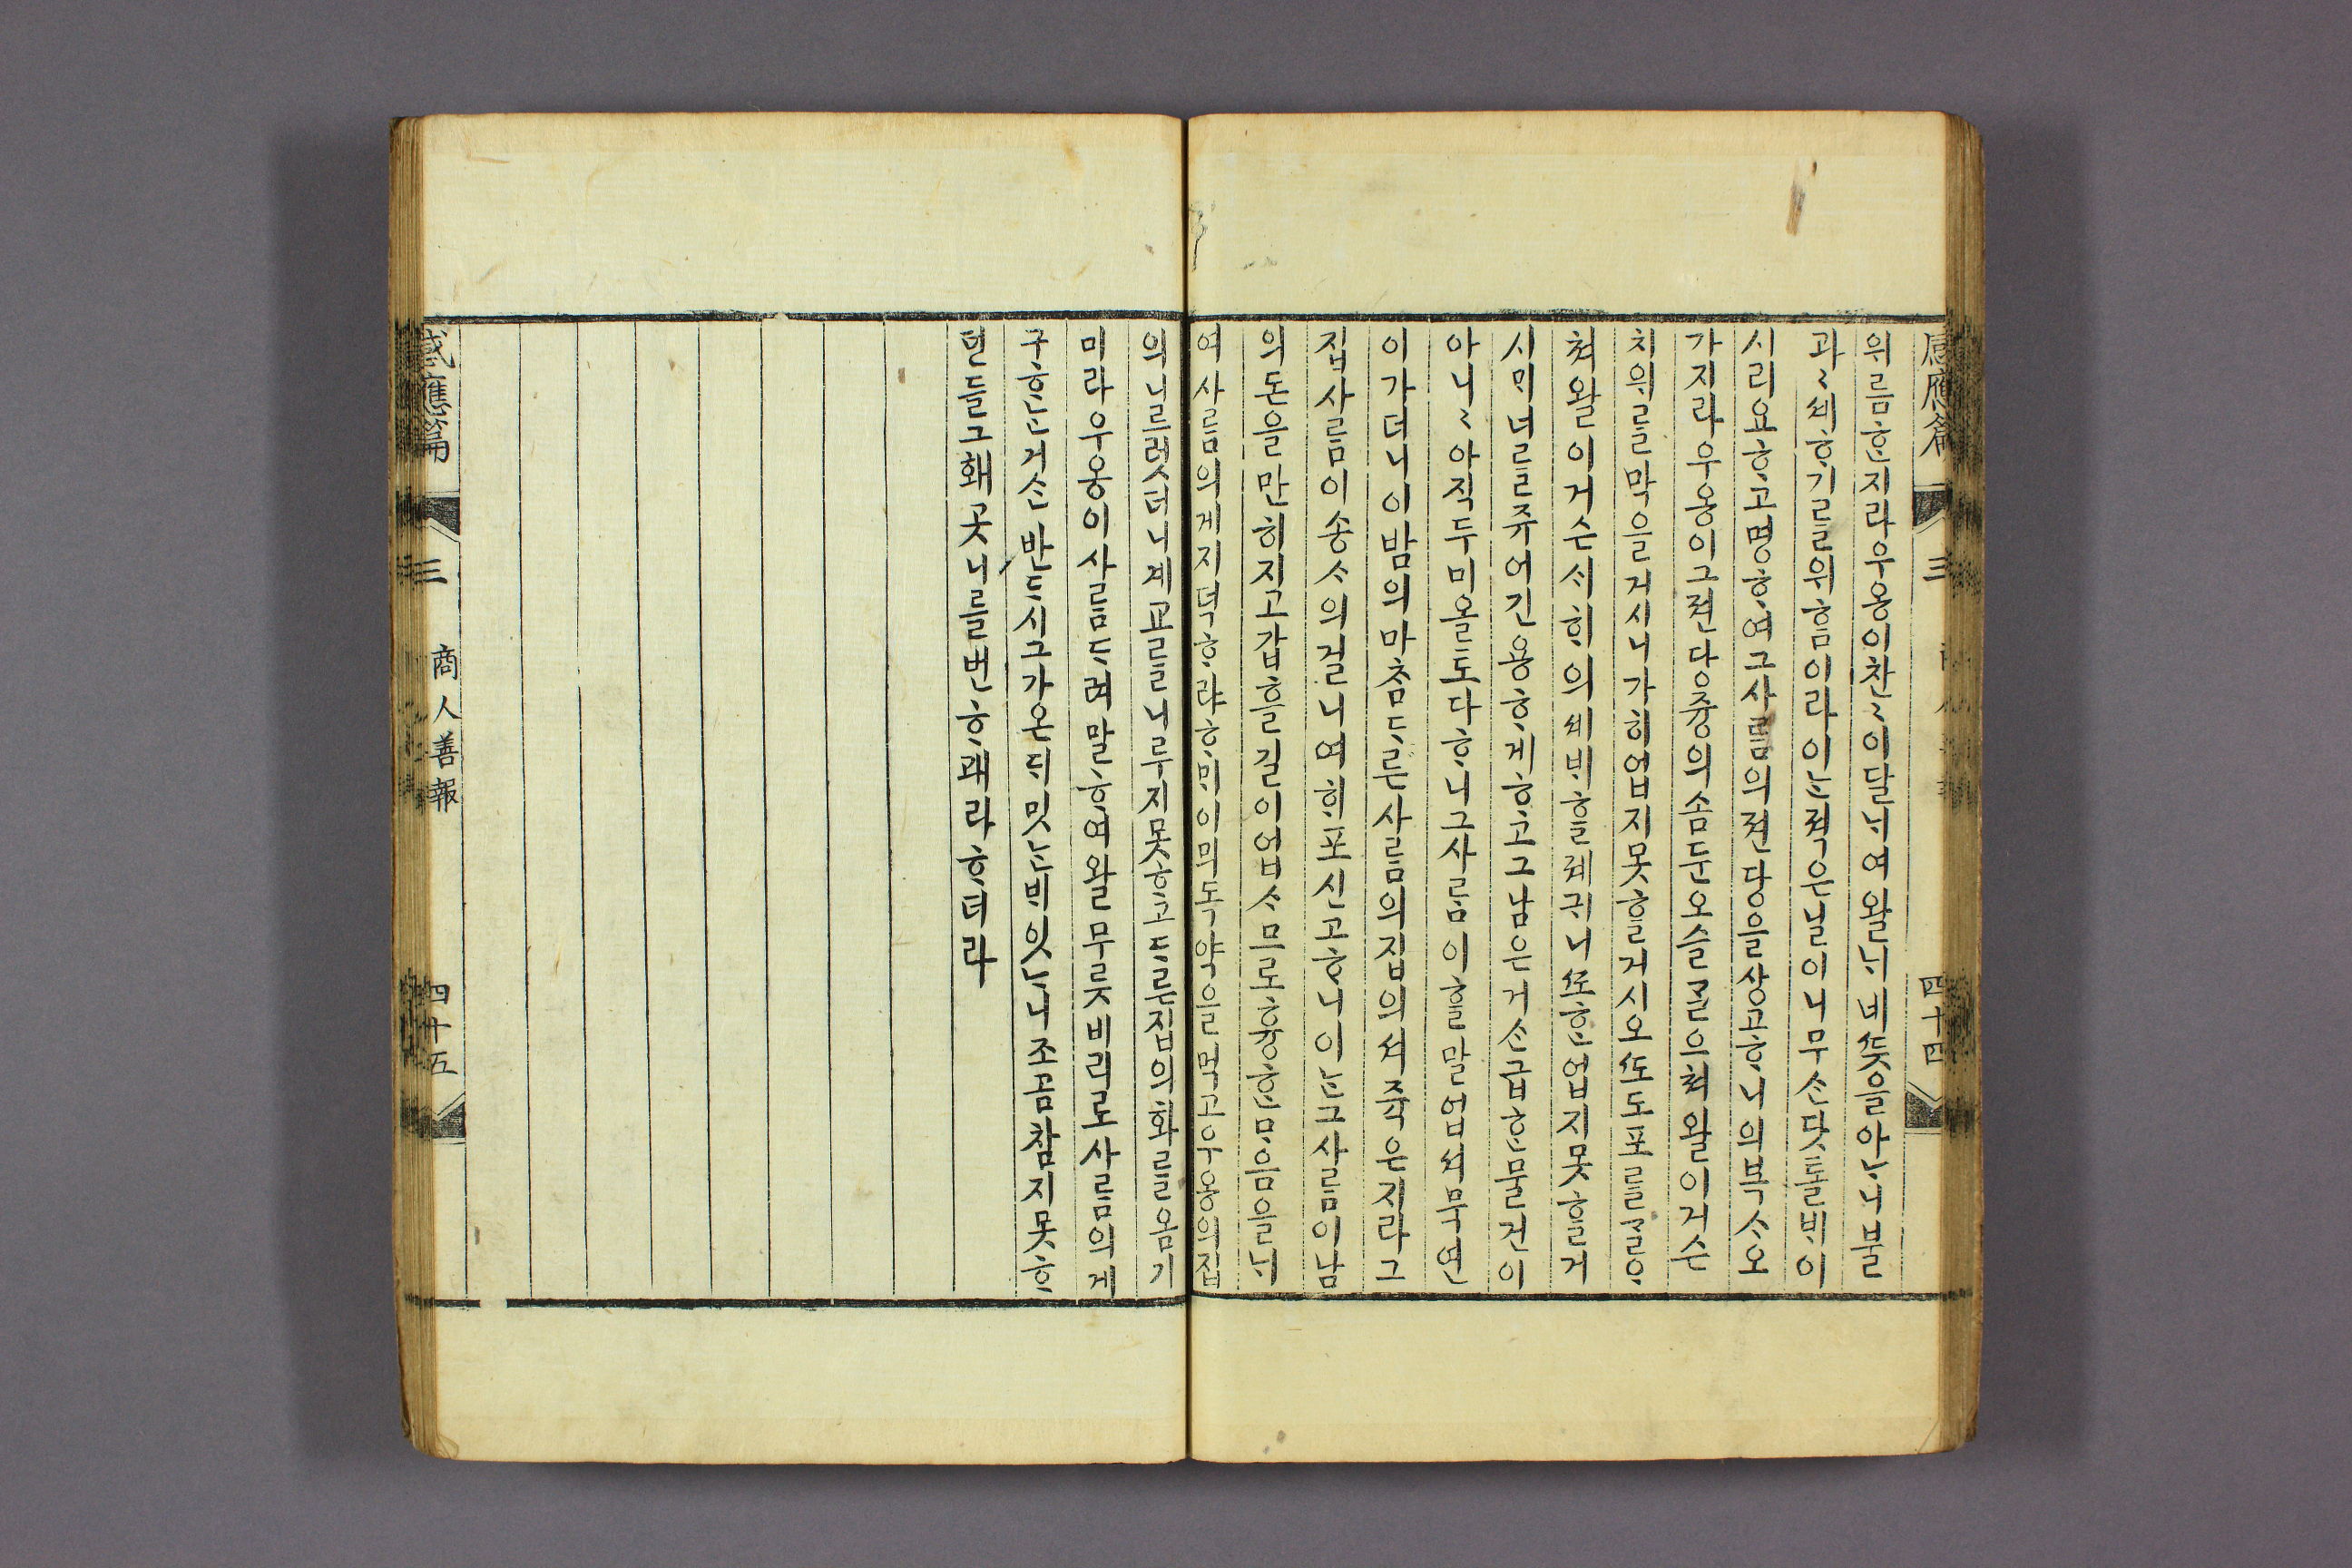 感應篇 三 四十四
위름ᄒᆞᆫ지라우옹이찬〻이달ᄂᆡ여왈ᄂᆡ네ᄯᅳᆺ을아ᄂᆞ니불
과〻셰ᄒᆞ기ᄅᆞᆯ위ᄒᆞᆷ이라이ᄂᆞᆫ젹은날이니무ᄉᆞᆫ다ᄐᆞᆯᄇᆡ이
시리오ᄒᆞ고명ᄒᆞ여그사ᄅᆞᆷ의젼당을샹고ᄒᆞ니의복ᄉᆞ오
가지라우옹이그젼당즁의솜둔오ᄉᆞᆯᄀᆞᄅᆞ쳐왈이거ᄉᆞᆫ
치위ᄅᆞᆯ막을거시니가히업지못ᄒᆞᆯ거시오ᄯᅩ도포ᄅᆞᆯᄀᆞᄅᆞ
쳐왈이거ᄉᆞᆫᄉᆡᄒᆡ의셰ᄇᆡᄒᆞᆯ졔ᄀᆡ니ᄯᅩᄒᆞᆫ업지못ᄒᆞᆯ거
시ᄆᆡ더ᄅᆞᆯ주어긴용ᄒᆞ게ᄒᆞ고그남은거ᄉᆞᆫ급ᄒᆞᆫ물건이
아니〻아직두미올도다ᄒᆞ니그사ᄅᆞᆷ이ᄒᆞᆯ말업셔무연
이가더니이밤의마ᄎᆞᆷᄃᆞᄅᆞᆫ사ᄅᆞᆷ의집의셔죽은지라그
집사ᄅᆞᆷ이송ᄉᆞ의걸니여ᄒᆡ포신고ᄒᆞ니이ᄂᆞᆫ그사ᄅᆞᆷ이남
의돈을만히지고갑흘길이업ᄉᆞ므로흉ᄒᆞᆫᄆᆞᄋᆞᆷ을ᄂᆡ
여사ᄅᆞᆷ의게지덕ᄒᆞ랴ᄒᆞᄆᆡ이믜독약을먹고우옹의집
의니르럿더니계교ᄅᆞᆯ니루지못ᄒᆞ고ᄃᆞᄅᆞᆫ집의화ᄅᆞᆯ옴기
미라우옹이사ᄅᆞᆷᄃᆞ려말ᄒᆞ여왈무릇비리로사ᄅᆞᆷ의게
구ᄒᆞᄂᆞᆫ거ᄉᆞᆫ반ᄃᆞ시그가온ᄃᆡ밋ᄂᆞᆫᄇᆡ잇ᄂᆞ니조곰ᄎᆞᆷ지못ᄒᆞ
면들그홰곳니ᄅᆞᆯ번ᄒᆞ괘라ᄒᆞ더라
感應篇 三 商人善報 四十五